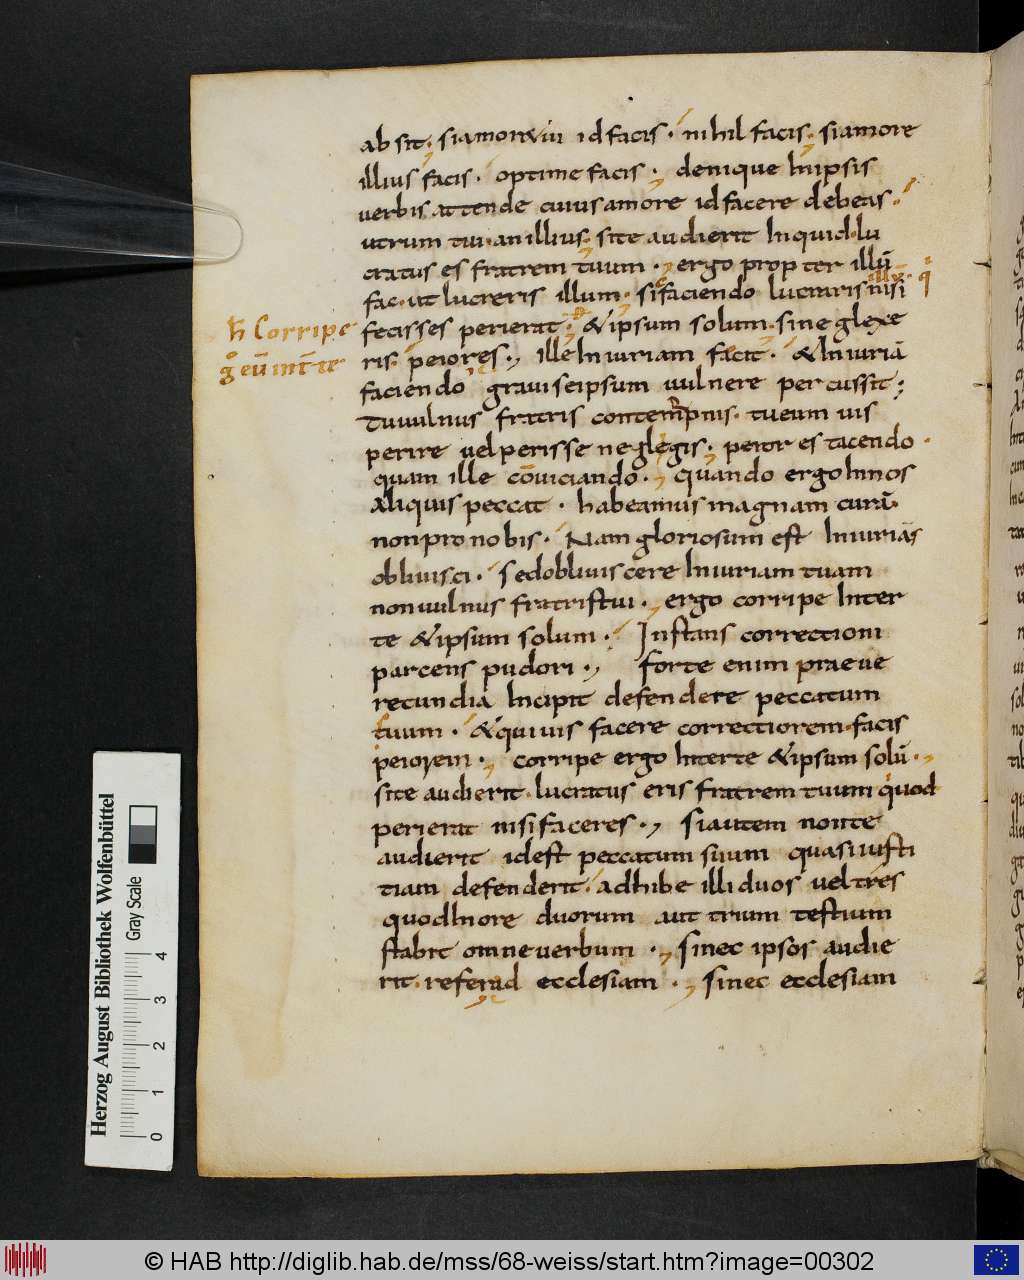 absit; si amore tui id facis. nihil facis; si amore
illius facis. optime facis. denique in ipsis
verbis attende cuius amore id facere debeas.
utrum tui. an illius; si te audierit inquid. lu
cratus es fratrem tuum. ergo propter illū
fac. ut lucreris illum; si faciendo lucraris nisi
fecisses perierat; & ipsum solum. sine glexe
Corripe
ris. peiores. ille iniuriam facit. & iniuriā
eū int̄ te
faciendo gravi se ipsum vulnere percussit;
Tu vulnus fratris contempnis. tu eum vis
perire vel perisse neglegis; peior es tacendo
quam ille cōviciando. quando ergo in nos
aliquis peccat. habeamus magnam curā
non pro nobis. Nam gloriosum est iniurias
oblivisci. sed obliviscere iniuriam tuam
non vulnus fratris tui. ergo corripe inter
te & ipsum solum. Instans correctioni
parcens pudori. forte enim prae ve
recundia incipit defendere peccatum
suum. & qui vis facere correctiorem. facis
peiorem. corripe ergo inter te & ipsum solū.
si te audierit. lucratus eris fratrem tuum quod
perierat nisi faceres. si autem non te
audierit id est peccatum suum quasi iusti
tiam defenderit. adhibe illi duos vel tres
quod in ore duorum aut trium testium
stabit omne verbum. si nec ipsos audie
rit. refer ad ecclesiam. si nec ecclesiam
Herzog August Bibliothek Wolfenbüttel
Gray Scale
0 1 2 3 4
© HAB http://diglib.hab.de/mss/68-weiss/start.htm?image=00302